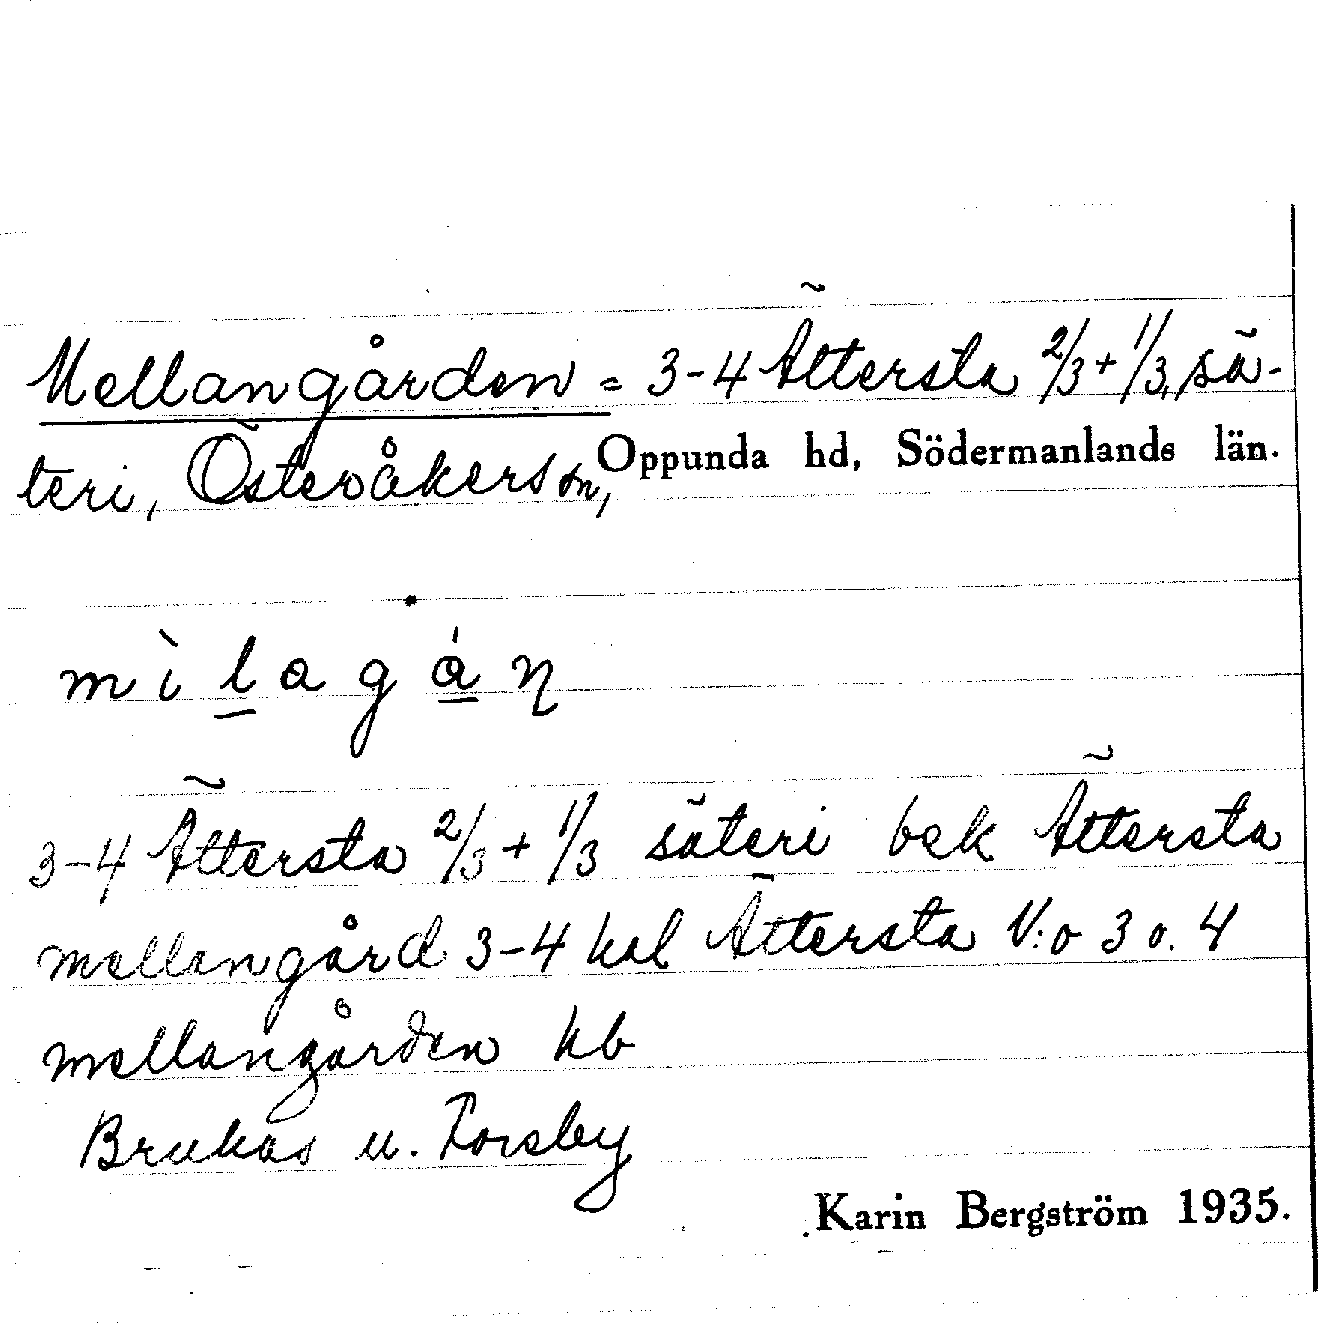 Mellangården = 3-4 Ättersta 2/3 + 1/3, sä-
teri, Österåkers sn, Oppunda hd, Södermanlands län.
mìlagán
3-4 Ättersta 2/3 + 1/3 säteri bek Ättersta
mellangård 3-4 hal Ättersta N:o 3 o. 4
mellangården kb
Brukas u. Forsby
Karin Bergström 1935.